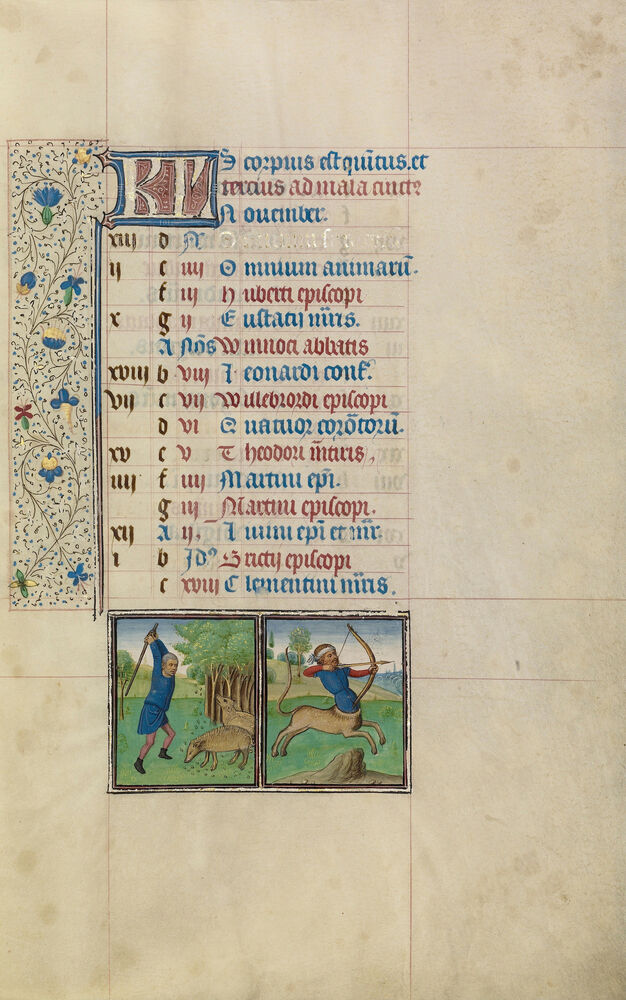 KL Scorpius est quintus. et
tercius ad mala cincte
Nouember.
xiii d N O
ii e iiii Omnium animarū.
f iii Huberti episcopi
x g ii Eustacii mr̄is.
A Nōs Winnoci abbatis
xviii b viii Leonardi conf.
vii c vii Willebrordi episcopi
d vi Quatuor corōtorū.
xv e v Theodori m̄tiris.
iiii f iiii Martini ep̄i.
g iii Martini episcopi.
xii A ii. Liuini ep̄i et mr̄.
i b Jdꝰ Brictii episcopi
c xviii Clementini mr̄is.